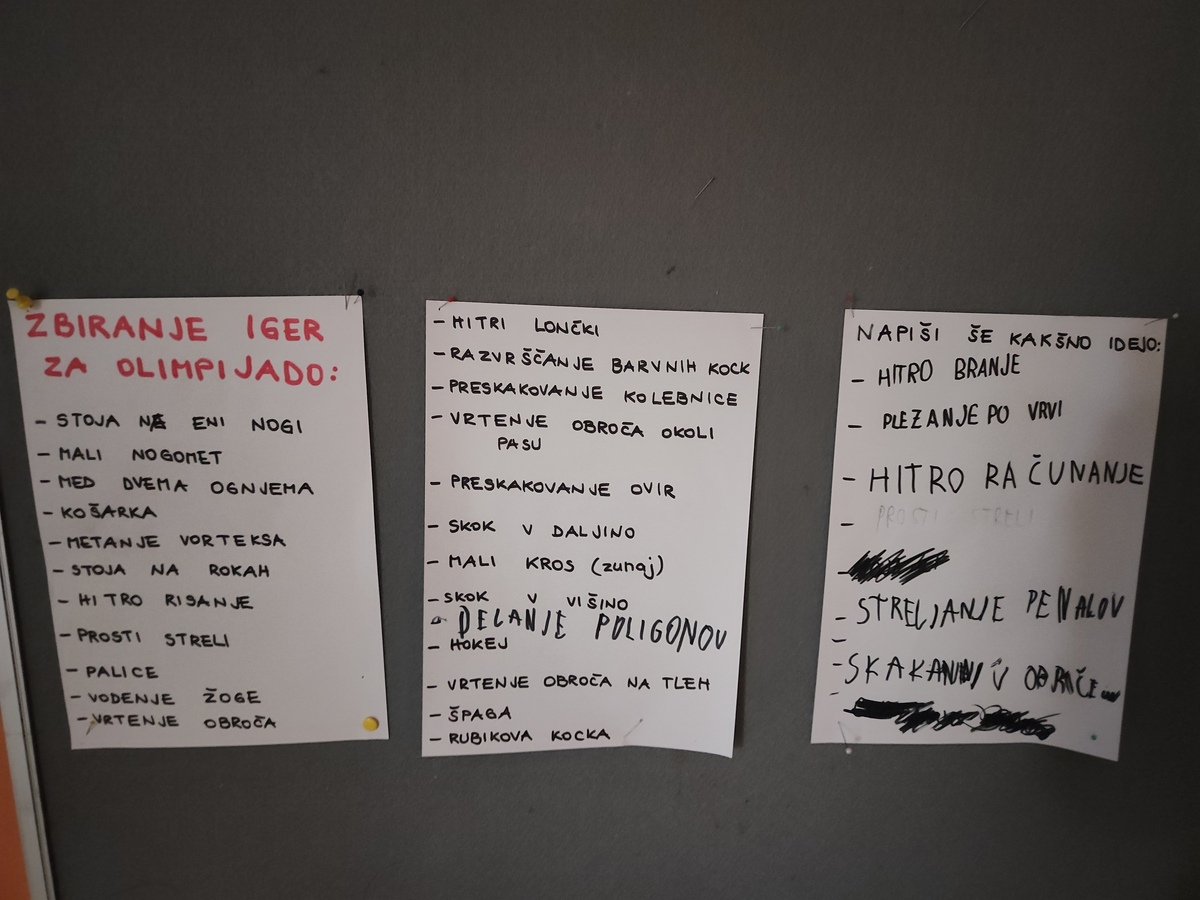 ZBIRANJE IGER
ZA OLIMPIJADO:
- STOJA NA ENI NOGI
- MALI NOGOMET
- MED DVEMA OGNJEMA
- KOŠARKA
- METANJE VORTEKSA
- STOJA NA ROKAH
- HITRO RISANJE
- PROSTI STRELI
- PALICE
- VODENJE ŽOGE
- VRTENJE OBROČA
- HITRI LONČKI
- RAZVRŠČANJE BARVNIH KOCK
- PRESKAKOVANJE KOLEBNICE
- VRTENJE OBROČA OKOLI
PASU
- PRESKAKOVANJE OVIR
- SKOK V DALJINO
- MALI KROS (zunaj)
- SKOK V VIŠINO
- DELANJE POLIGONOV
- HOKEJ
- VRTENJE OBROČA NA TLEH
- ŠPAGA
- RUBIKOVA KOCKA
NAPIŠI ŠE KAKŠNO IDEJO:
- HITRO BRANJE
- PLEZANJE PO VRVI
- HITRO RAČUNANJE
- PROSTI STRELI
- STRELJANJE PENALOV